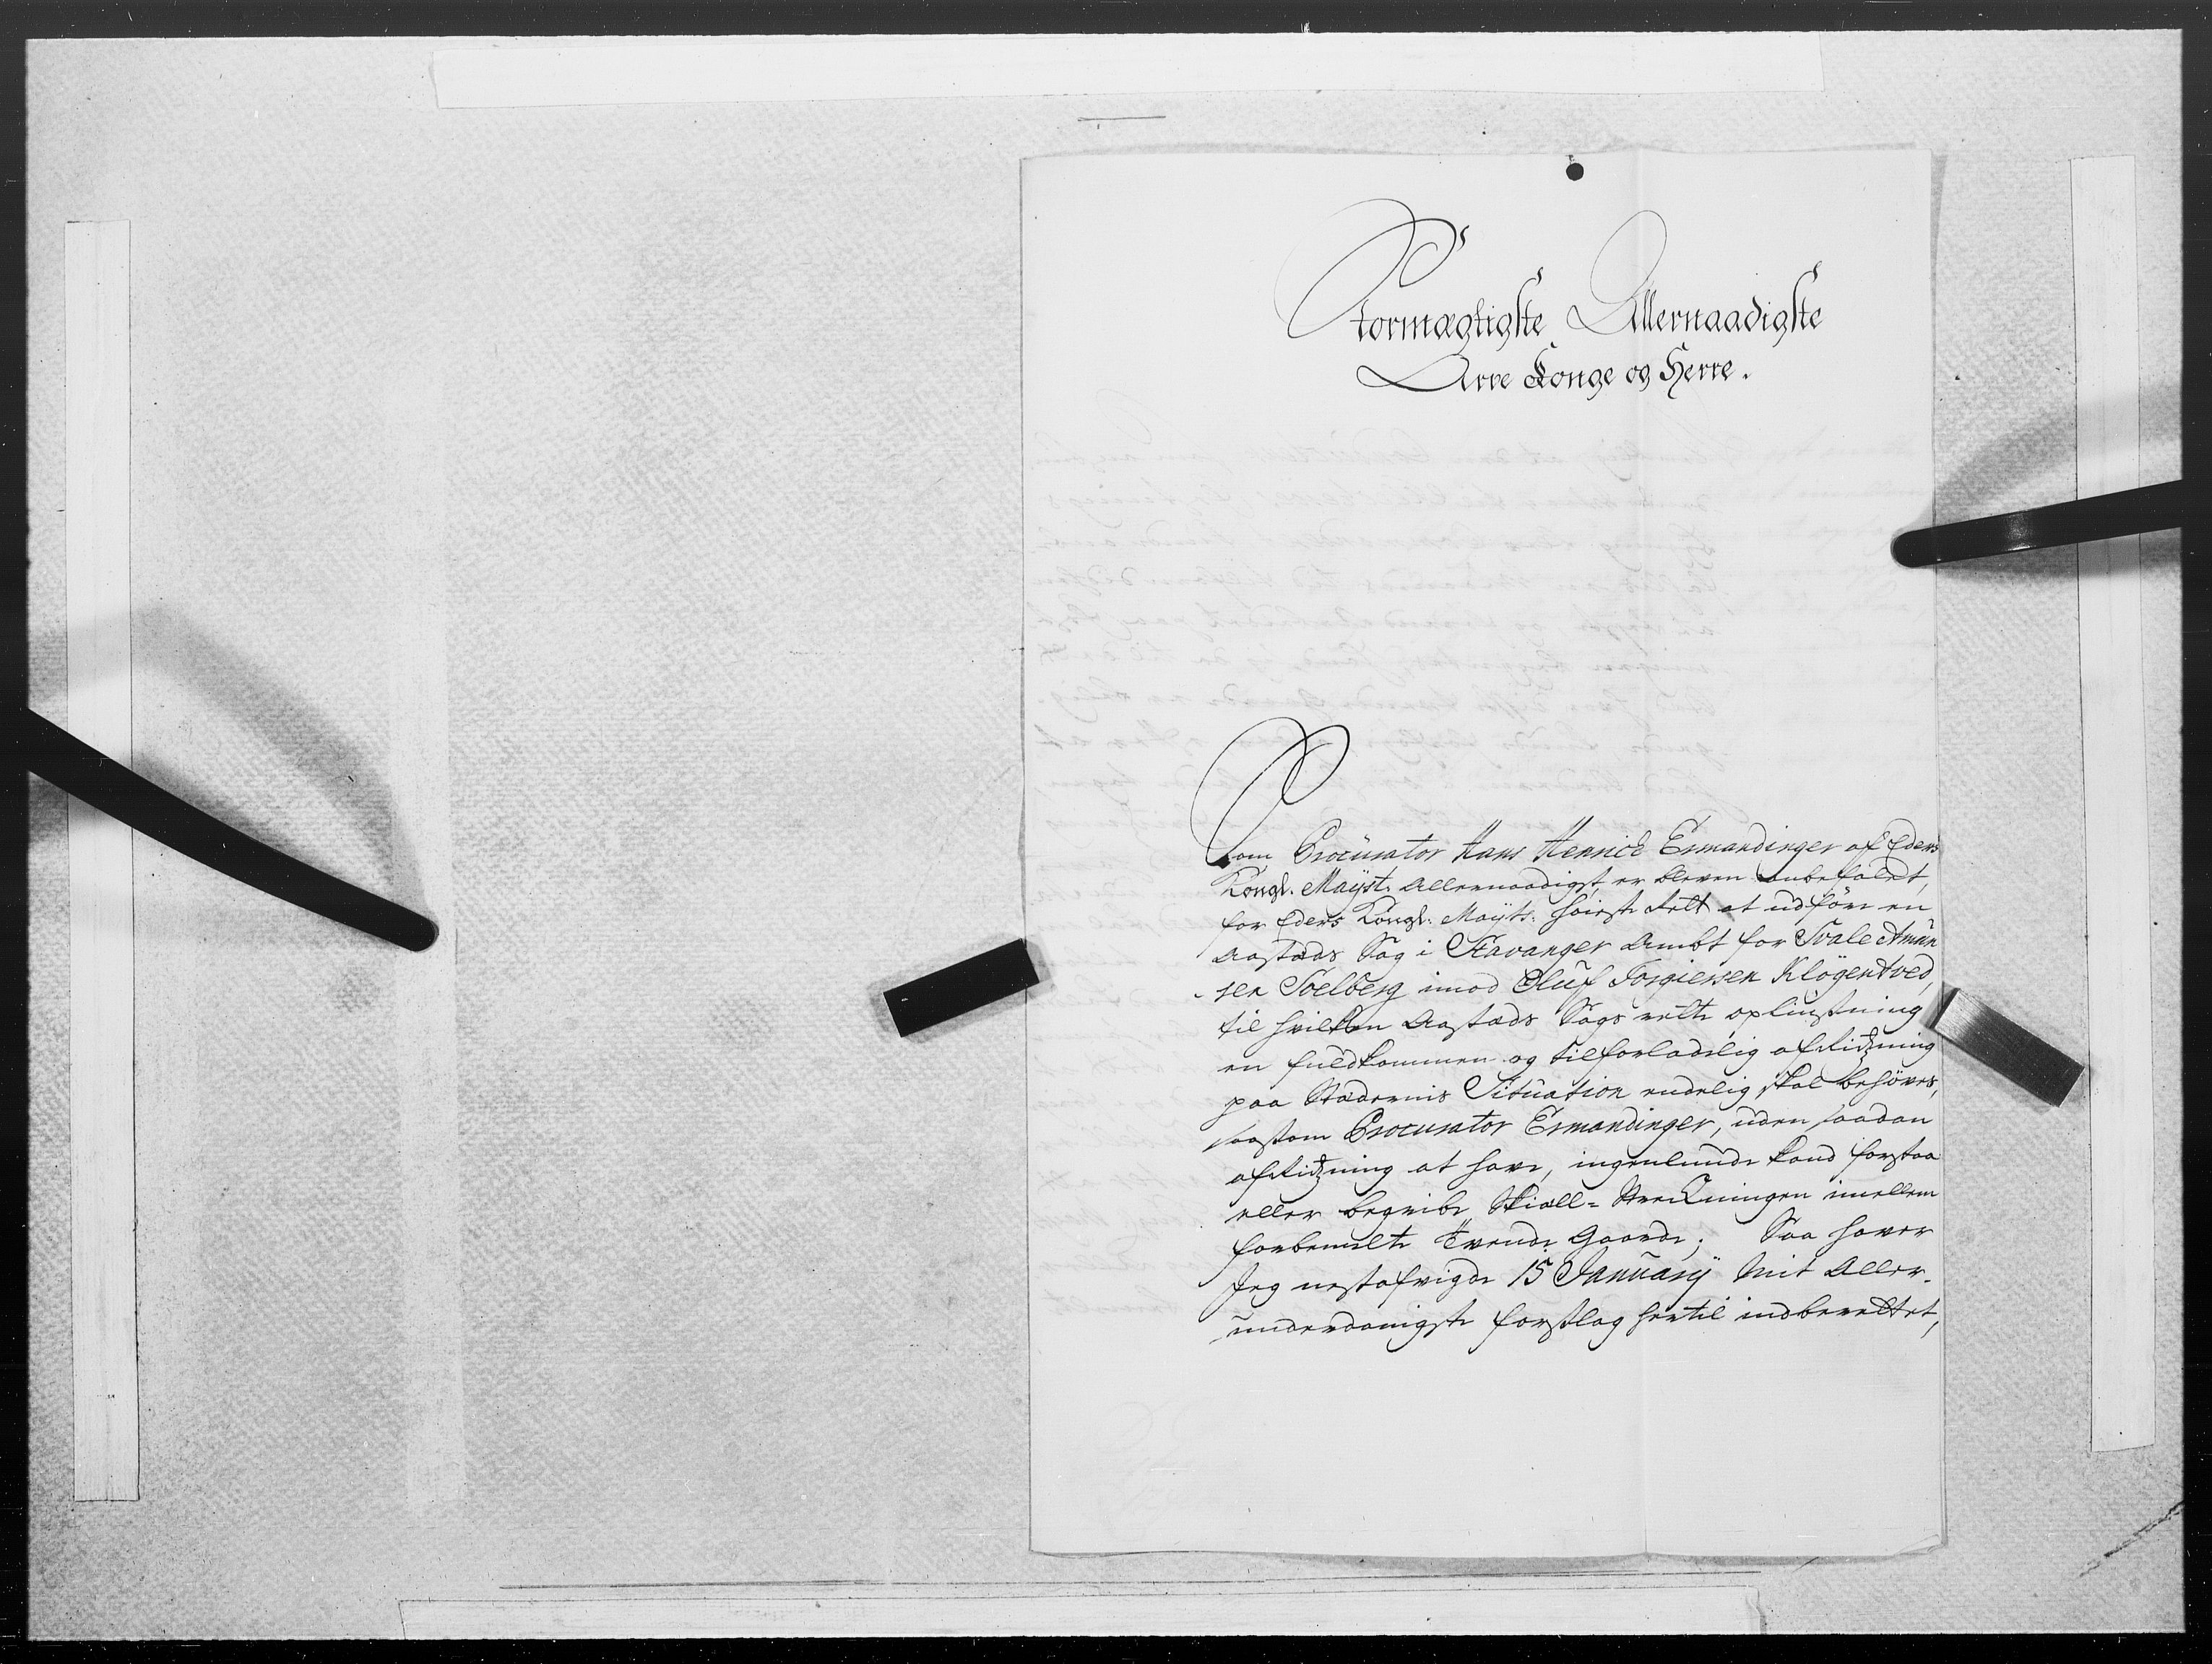 Stormægtigste Allernaadigste
Arve Konge og Herre.
Som Procurator Hans Henrich Ermandinger af Eders
Kongl. Mayst. Allernaadigst er bleven anbefalet,
for Eders Kongl: Mayts: høieste Rett at udføre en
Aastæds Sag i Stavanger Ambt for Svale Amün
sen Soelberg imod Oluf Torgiersen Kløgentved,
til hvilken Aastæds Sags rette oplüysning
en fuldkommen og tilforladelig afRidzning
paa Stædernis Situation endelig skal behøves,
saasom Procurator Ermandinger, uden saadan
afRidzning at have, ingenlunde kand forstaa
eller begribe Skiæll-Strekningen imellem
forbemelte Tvende Gaarde; Saa haver
Jeg nestafvigde 15 January mit Aller-
underdanigste forslag hertil indberettet,